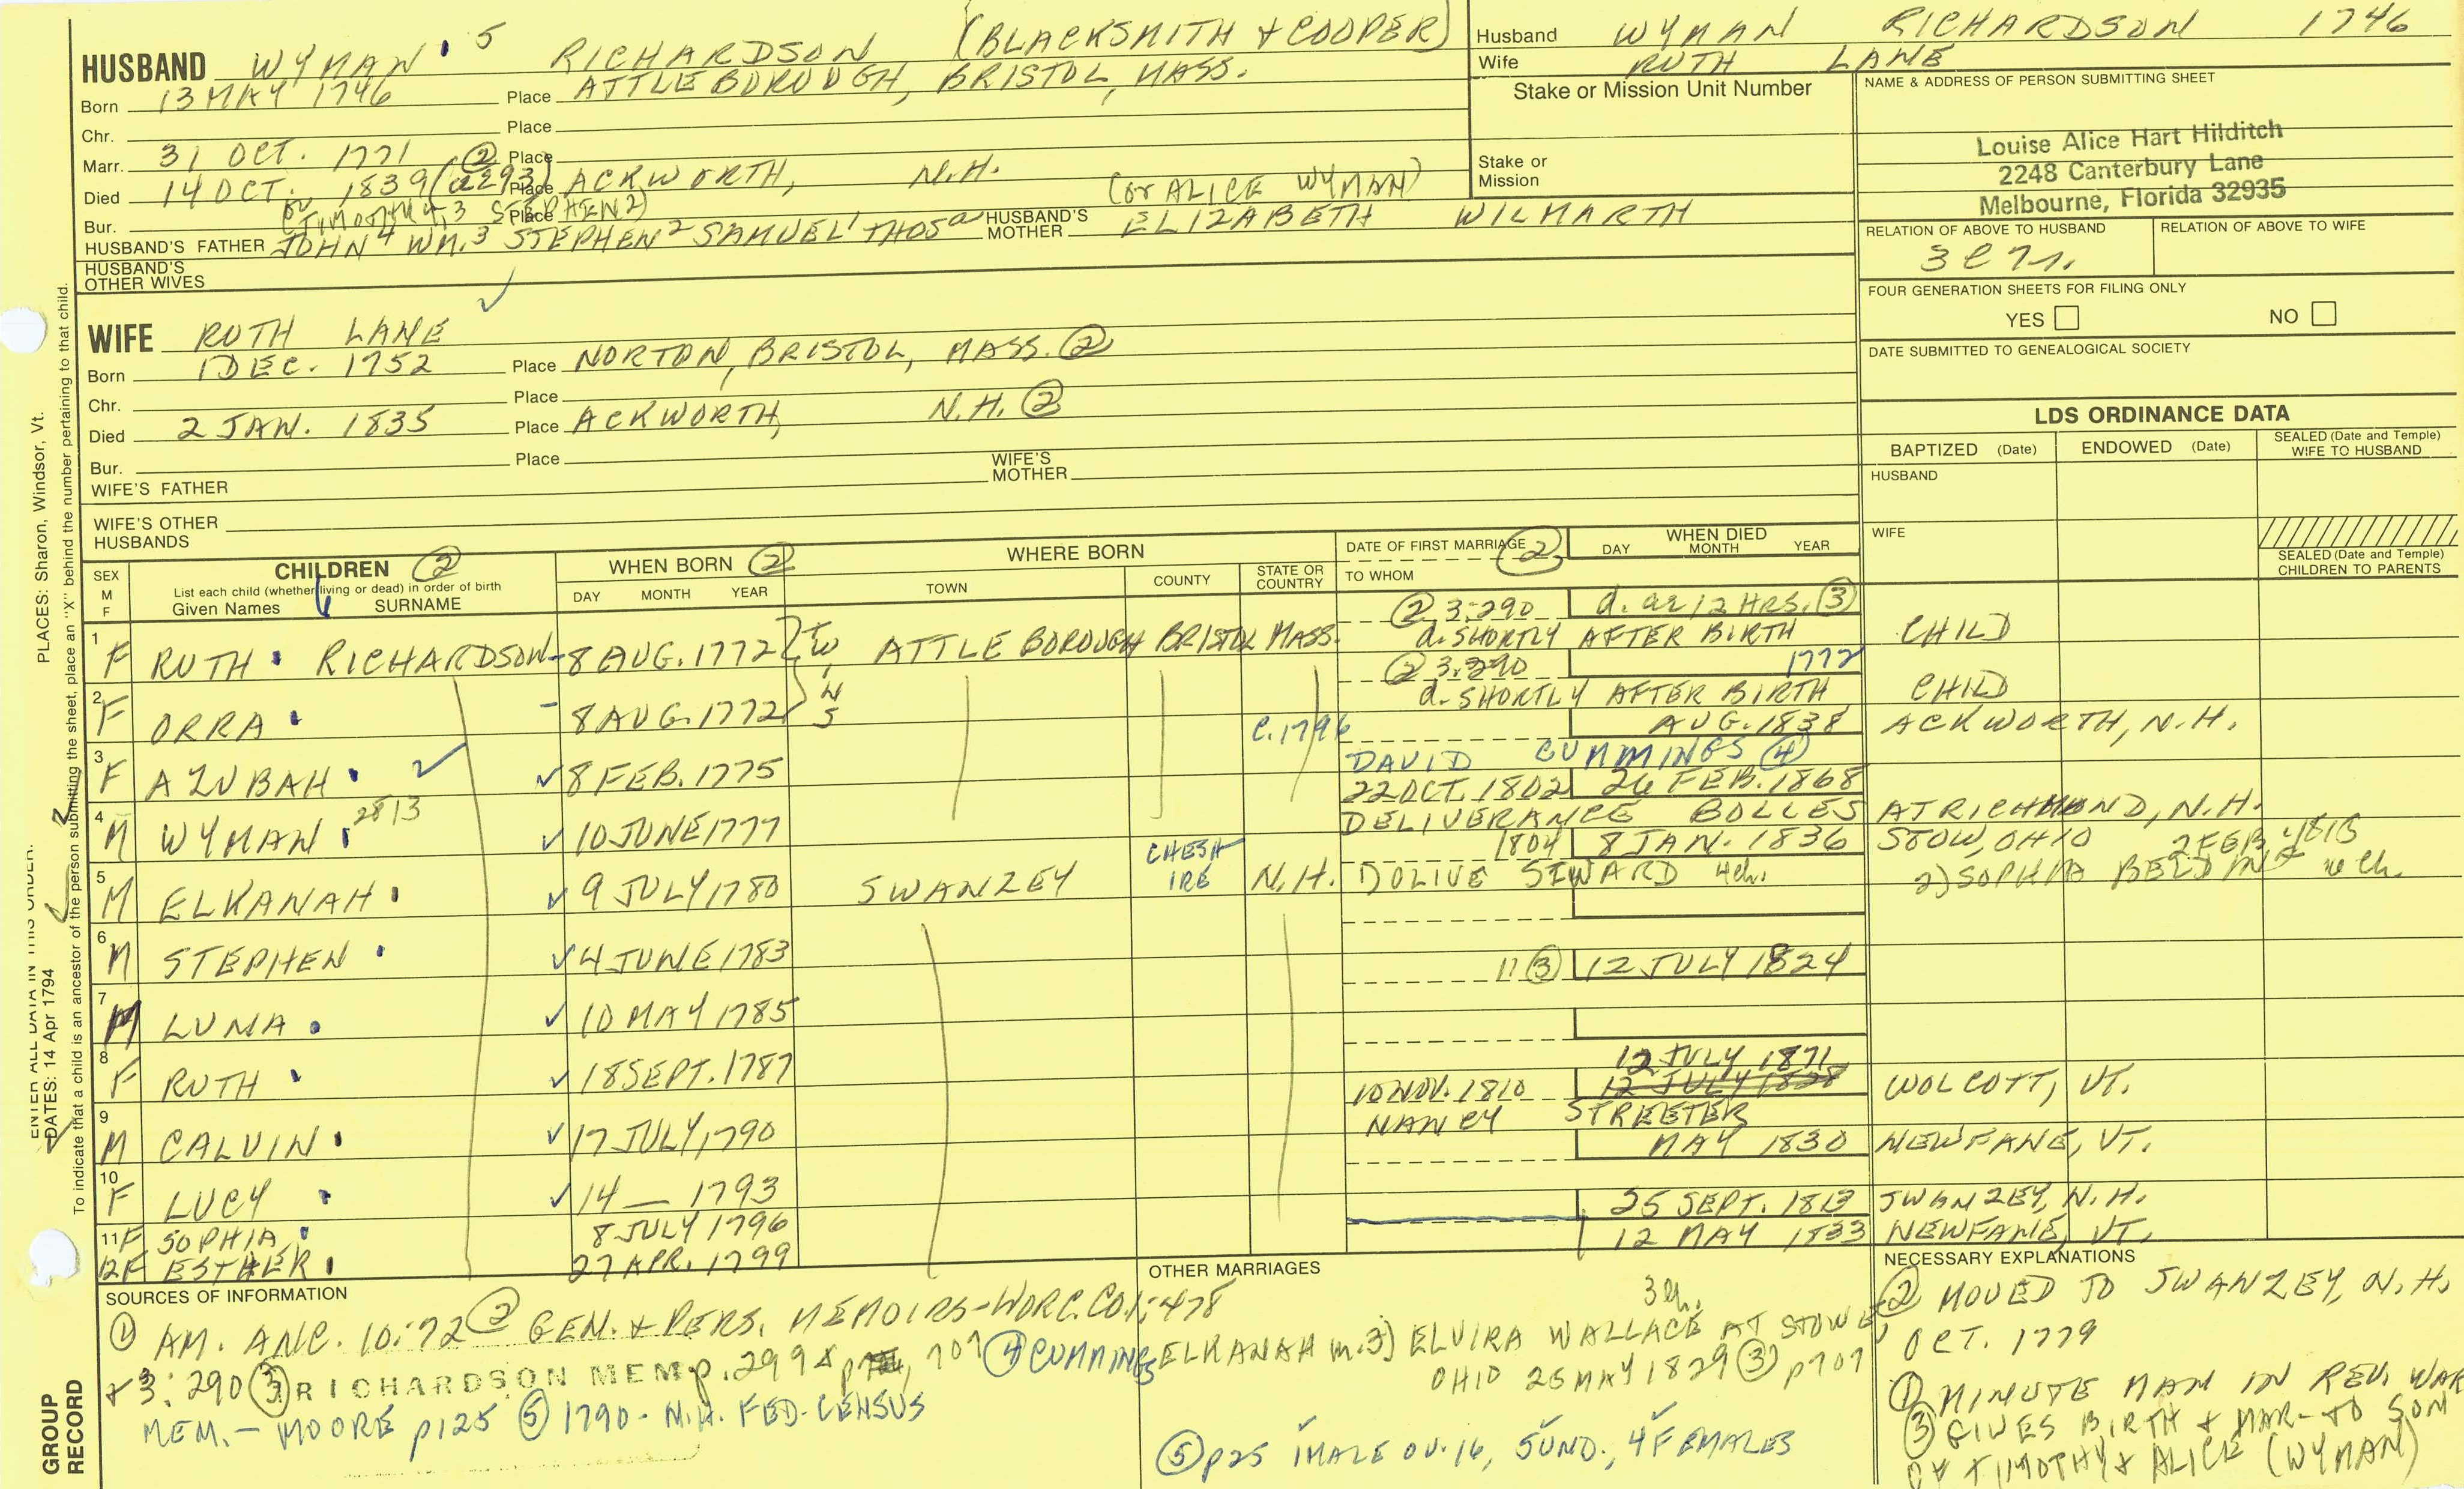 HUSBAND WYMAN 5 RICHARDSON (BLACKSMITH + COOPER)
Born 13 MAY 1746 Place ATTLEBOROUGH, BRISTOL, MASS.
Chr. Place
Marr. 31 OCT. 1771 ② Place
Died 14 OCT. 1839 (a293) Place ACKWORTH, N.H.
Bur. or (TIMOTHY 4, 3 STEPHEN 2) Place
(or ALICE WYMAN)
HUSBAND'S FATHER JOHN 4 WM. 3 STEPHEN 2 SAMUEL 1 THOS a HUSBAND'S MOTHER ELIZABETH WILMARTH
HUSBAND'S OTHER WIVES
WIFE RUTH LANE
Born 1 DEC. 1752 Place NORTON, BRISTOL, MASS. ②
Chr. Place
Died 2 JAN. 1835 Place ACKWORTH, N.H. ②
Bur. Place
WIFE'S FATHER WIFE'S MOTHER
WIFE'S OTHER HUSBANDS
Husband WYMAN RICHARDSON 1746
Wife RUTH LANE
Stake or Mission Unit Number
Stake or Mission
NAME & ADDRESS OF PERSON SUBMITTING SHEET
Louise Alice Hart Hilditch
2248 Canterbury Lane
Melbourne, Florida 32935
RELATION OF ABOVE TO HUSBAND RELATION OF ABOVE TO WIFE
FOUR GENERATION SHEETS FOR FILING ONLY
YES NO
DATE SUBMITTED TO GENEALOGICAL SOCIETY
LDS ORDINANCE DATA
BAPTIZED (Date) ENDOWED (Date) SEALED (Date and Temple) WIFE TO HUSBAND
HUSBAND
WIFE
SEALED (Date and Temple) CHILDREN TO PARENTS
SEX M F
CHILDREN ②
List each child (whether living or dead) in order of birth
Given Names SURNAME
WHEN BORN ②
DAY MONTH YEAR
WHERE BORN
TOWN COUNTY STATE OR COUNTRY
DATE OF FIRST MARRIAGE ②
TO WHOM
WHEN DIED
DAY MONTH YEAR
② 3:290 d. at 12 HRS. ③
1 F RUTH RICHARDSON 8 AUG. 1772 TW ATTLEBOROUGH BRISTOL MASS. d. SHORTLY AFTER BIRTH CHILD
② 3:290 1772
2 F ORRA 8 AUG. 1772 NS d. SHORTLY AFTER BIRTH CHILD
C. 1796 AUG. 1838 ACKWORTH, N.H.
3 F AZUBAH ✓ ✓ 8 FEB. 1775 DAVID CUMMINGS ④
22 OCT. 1802 26 FEB. 1868
4 M WYMAN 2813 ✓ 10 JUNE 1777 DELIVERANCE BOLLES AT RICHMOND, N.H.
1804 8 JAN. 1836 STOW, OHIO 2 FEB 1818
5 M ELKANAH ✓ 9 JULY 1780 SWANZEY CHESHIRE N.H. 1) OLIVE SEWARD 4 ch. 2) SOPHIA
6 M STEPHEN ✓ 4 JUNE 1783
③ 12 JULY 1824
7 M LUNA ✓ 10 MAY 1785
8 F RUTH ✓ 18 SEPT. 1787
12 JULY 1871
10 NOV. 1810 12 JULY 1828 WOLCOTT, VT.
9 M CALVIN ✓ 17 JULY, 1790 NANCY STREETER
MAY 1830 NEWFANE, VT.
10 F LUCY ✓ 14 — 1793
25 SEPT. 1813 SWANZEY, N.H.
11 F SOPHIA 8 JULY 1796
12 MAY 1833 NEWFANE, VT.
12 F ESTHER 27 APR. 1799
SOURCES OF INFORMATION
① AM. ANC. 10:72 ② GEN. + PERS. MEMOIRS-WORC. CO. 1:478
+ 3:290 ③ RICHARDSON MEM p. 299 & 707 ④ CUMMINGS
MEM. — MOORE p125 ⑤ 1790 - N.H. FED. CENSUS
OTHER MARRIAGES
3 ch.
ELKANAH m. 3) ELVIRA WALLACE AT STOWE,
OHIO 25 MAY 1829 ③ p707
⑤ p25 1 MALE OV. 16, 5 UND., 4 FEMALES
NECESSARY EXPLANATIONS
② MOVED TO SWANZEY, N.H.
OCT. 1779
① MINUTE MAN IN REV. WAR
③ GIVES BIRTH + MAR- TO SON
OF TIMOTHY & ALICE (WYMAN)
PLACES: Sharon, Windsor, Vt.
ENTER ALL DATA IN THIS ORDER:
DATES: 14 Apr 1794
To indicate that a child is an ancestor of the person submitting the sheet, place an "X" behind the number pertaining to that child.
GROUP RECORD